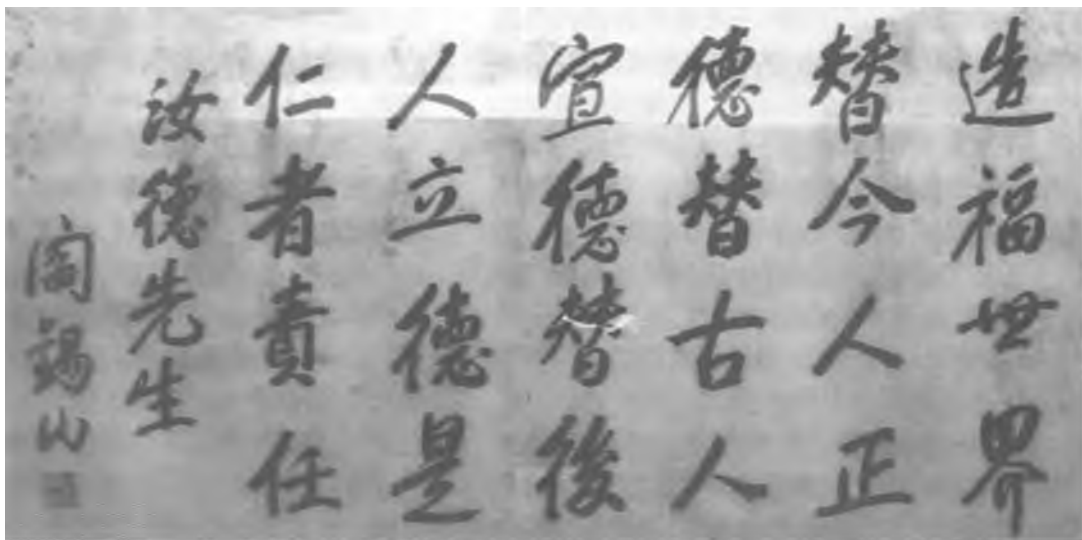 造福世界
替今人正
德替古人
宣德替後
人立德是
仁者責任
汝德先生
閻錫山